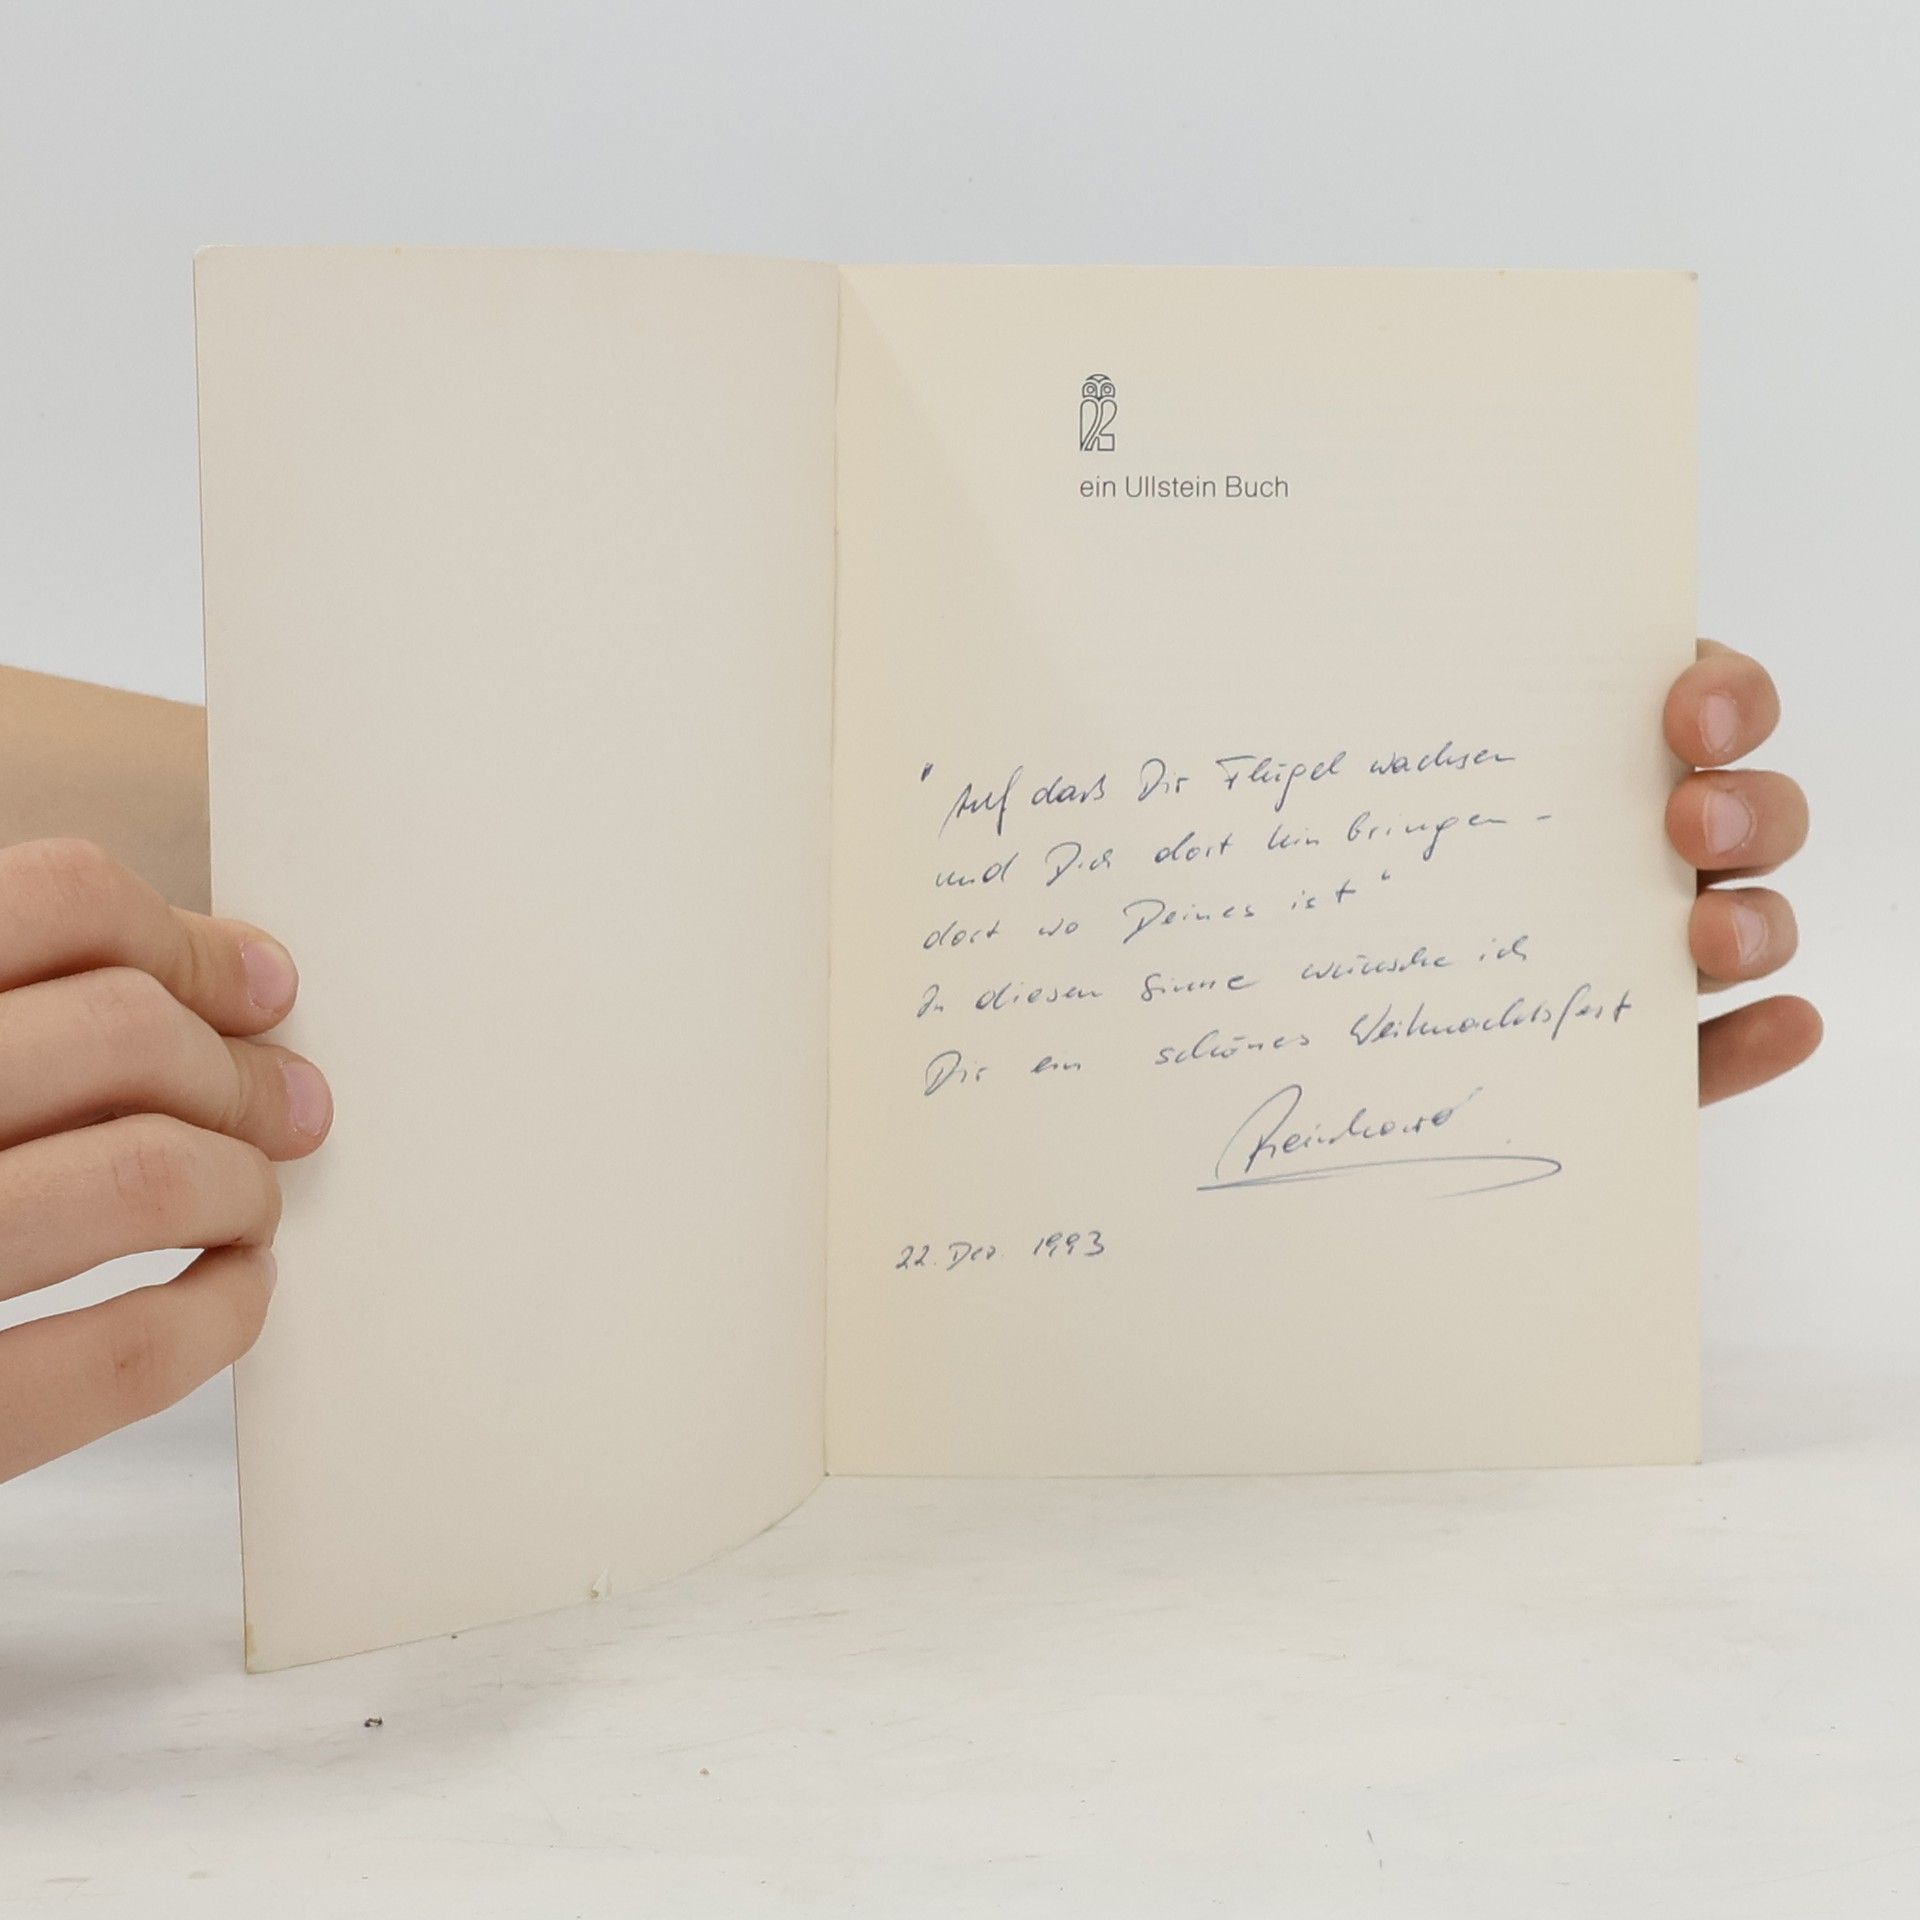 ein Ullstein Buch
"Auf daß Dir Flügel wachsen
und Dich dort hin bringen -
dort wo Deines ist"
In diesem Sinne wünsche ich
Dir ein schönes Weihnachtsfest
Reinhard
22. Dez. 1993